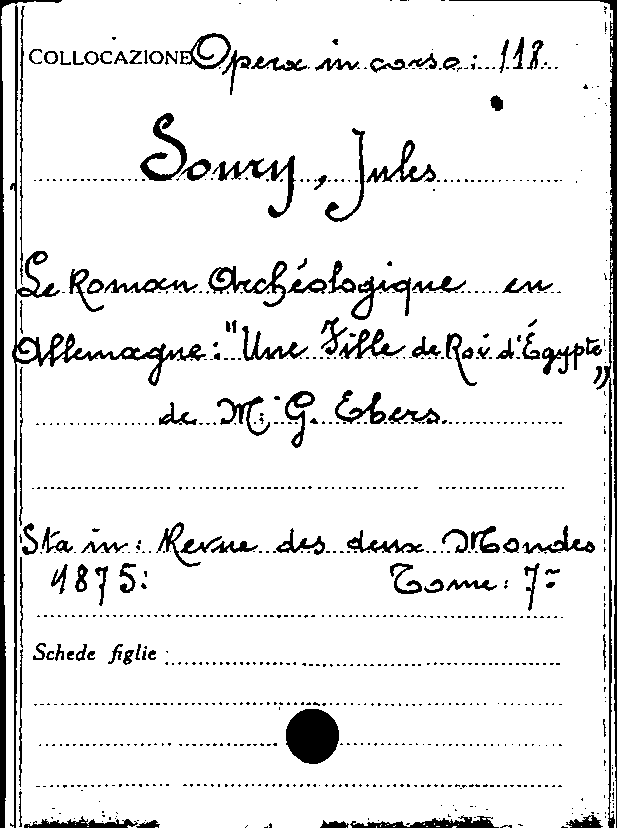 COLLOCAZIONE Opera in corso: 118.
Soury, Jules
Le Roman Archéologique en
Allemagne: "Une Fille de Roi d'Égypte„
de M. G. Ebers.
Sta in: Revue des deux Mondes
1875: Tome: 7=
Schede figlie :